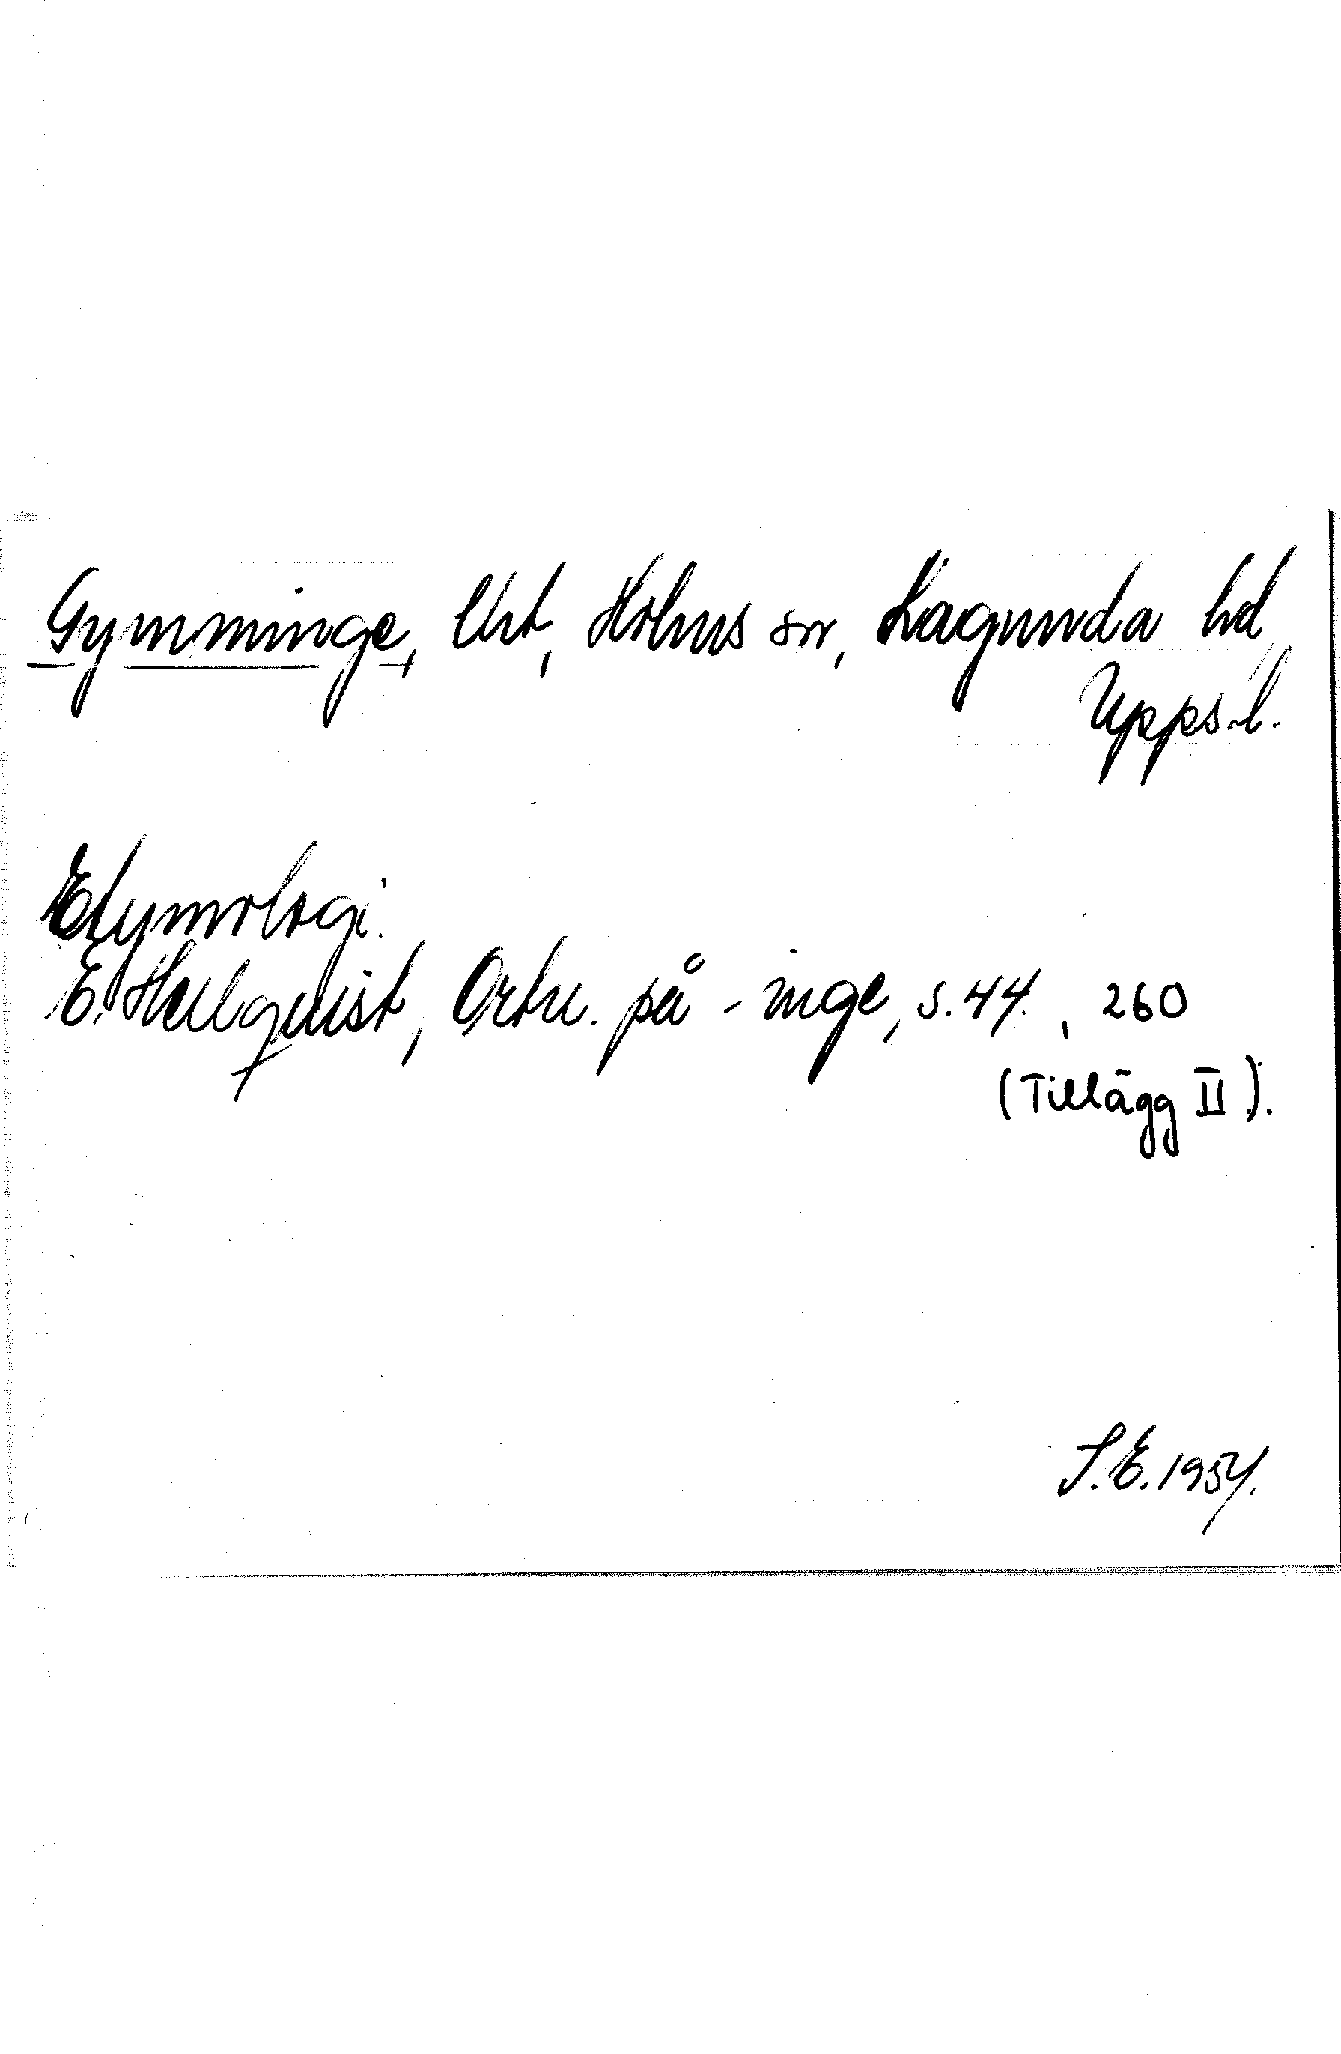 Gymminge, Ort, Holms sn, Lagunda hd,
Upps. l.
Etymologi.
E. Hellquist, Ortn. på -inge, s. 44., 260
(Tillägg II).
S.E. 1954.